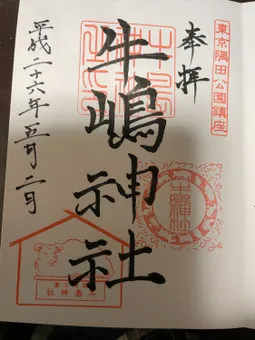 東京隅田公園鎮座
奉拝
牛嶋神社
牛島神社
平成二十六年五月二日
牛嶋神社